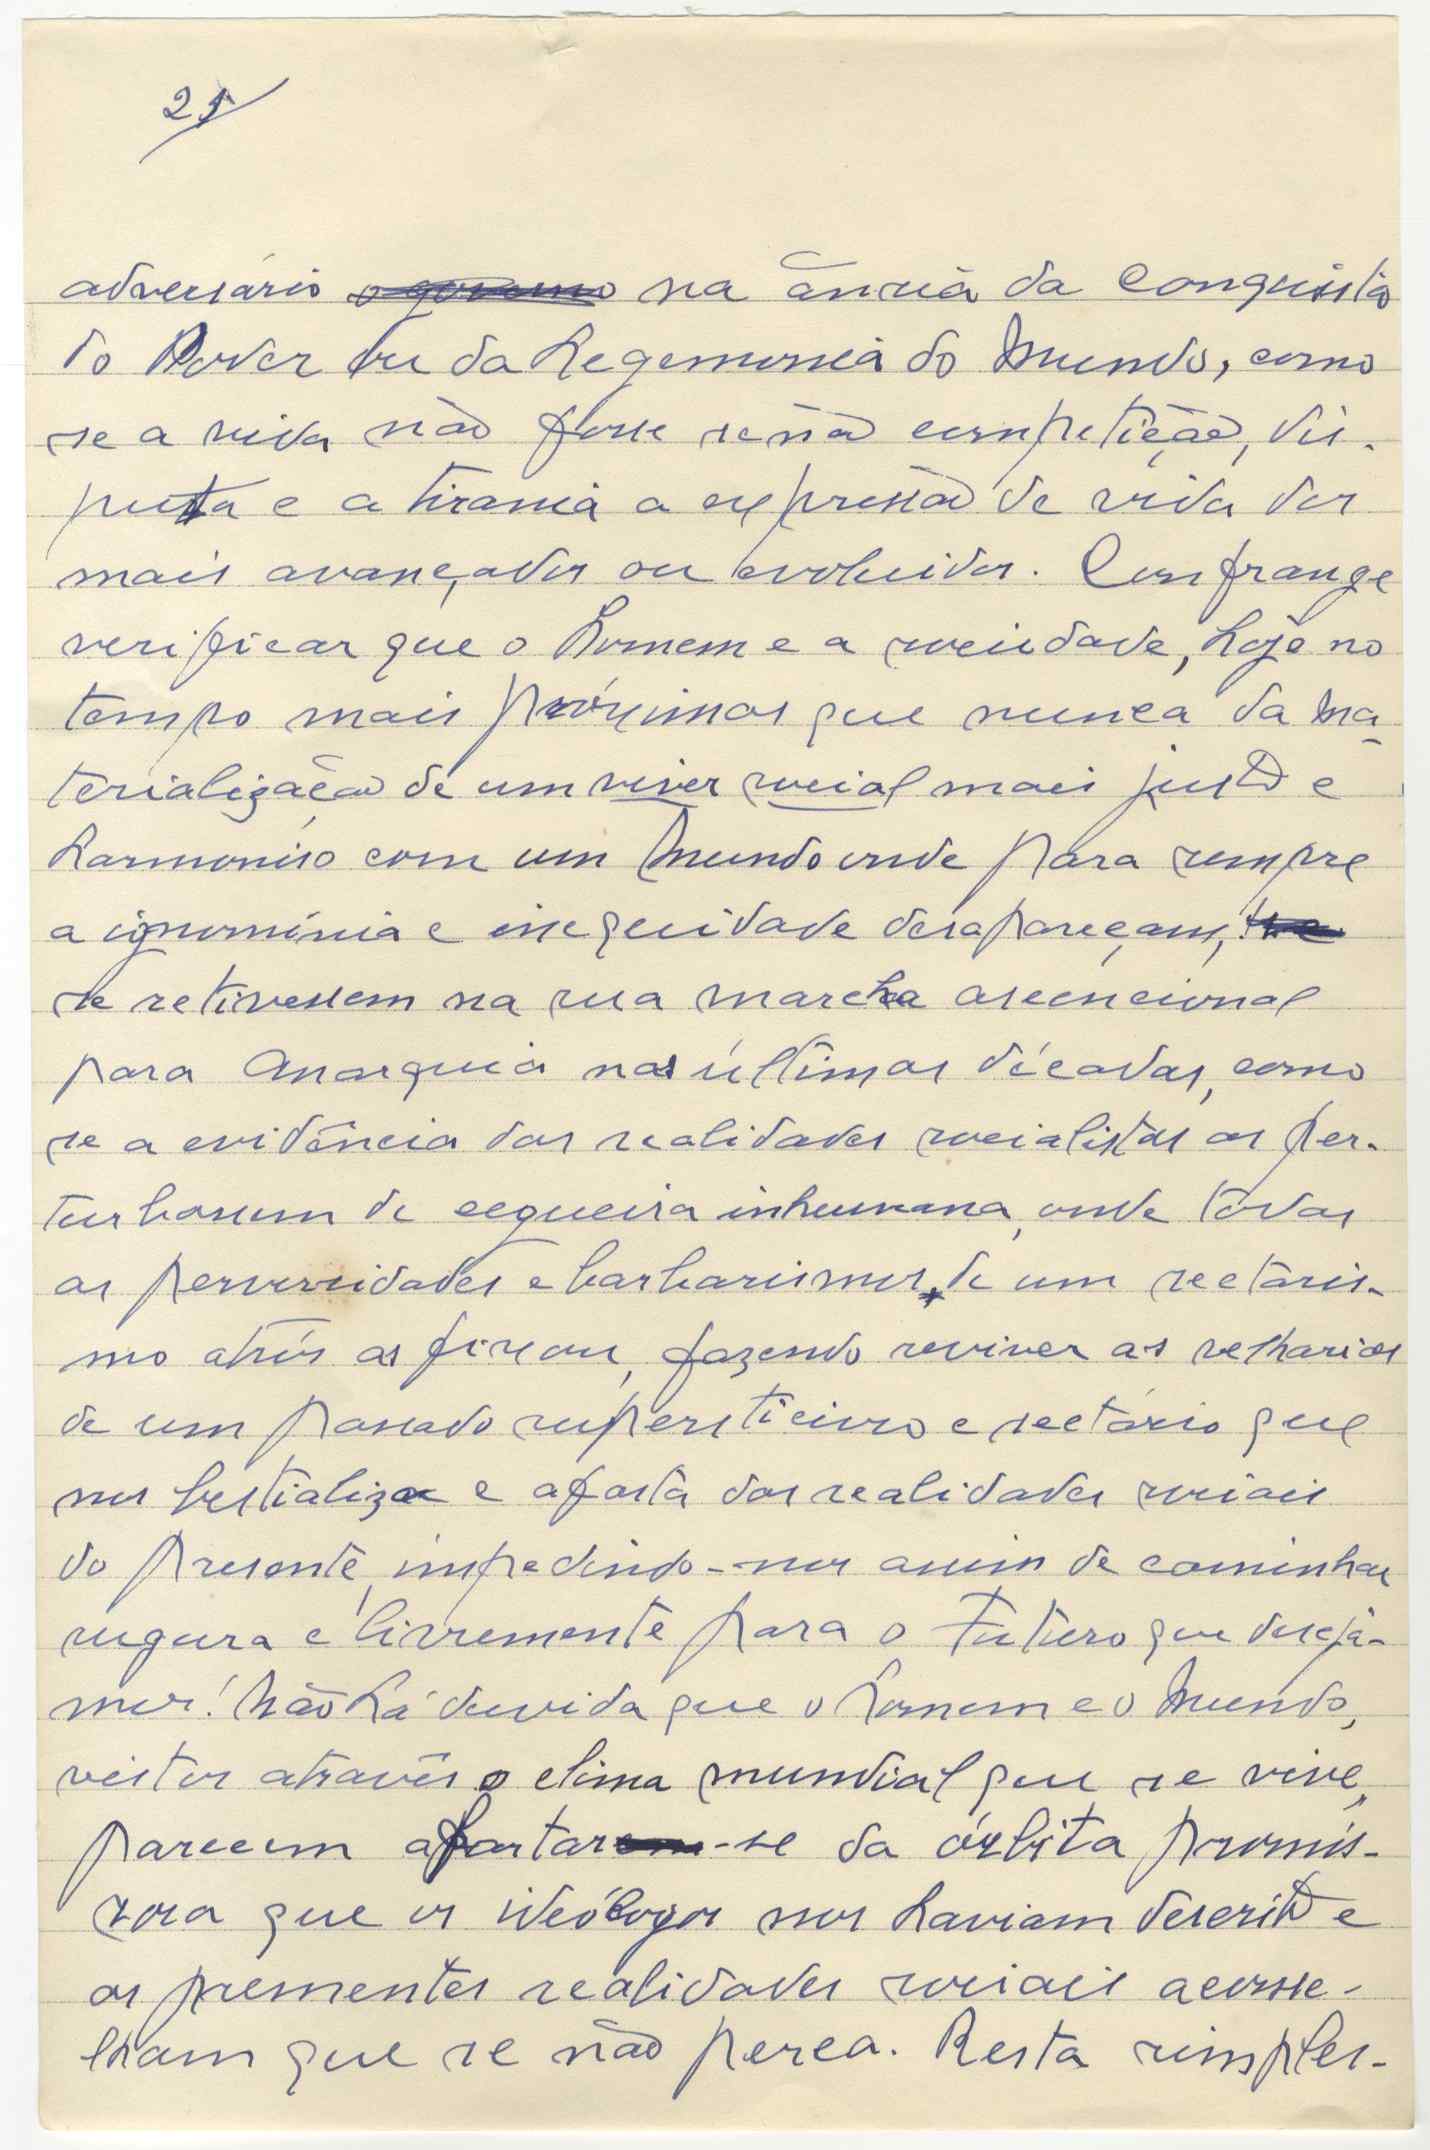 25/
adversário o governo na ânsia da Conquista
do Poder ou da hegemonia do Mundo, como
se a vida não fosse senão competição, dis-
puta e a tirania a expressão de vida dos
mais avançados ou evoluidos. Confrange
verificar que o homem e a sociedade, hoje no
tempo mais próximos que nunca da ma-
terialização de um viver social mais justo e
harmoniso com um Mundo onde para sempre
a ignomínia e inequidade desapareçam,
se retivessem na sua marcha ascencional
para Anarquia nas últimas décadas, como
se a evidência das realidades socialistas os per-
turbassem de cegueira inhumana, onde tôdas
as perversidades e barbarismos de um sectaris-
mo atrós os fixou, fazendo reviver as velharias
de um passado supersticioso e sectário que
nos bestializa e afasta das realidades sociais
do presente, impedindo-nos assim de caminhar
segura e livremente para o Futuro que desejá-
mos! Não há duvida que o homem e o Mundo,
vistos através o clima mundial que se vive,
parecem afastar-se da órbita promis-
sora que os ideólogos nos haviam descrito e
as prementes realidades sociais aconse-
lham que se não perca. Resta simples-